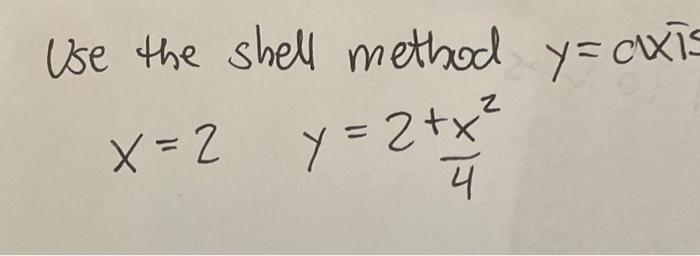 Use the shell method y = axis
x = 2 y = 2 + x²/4